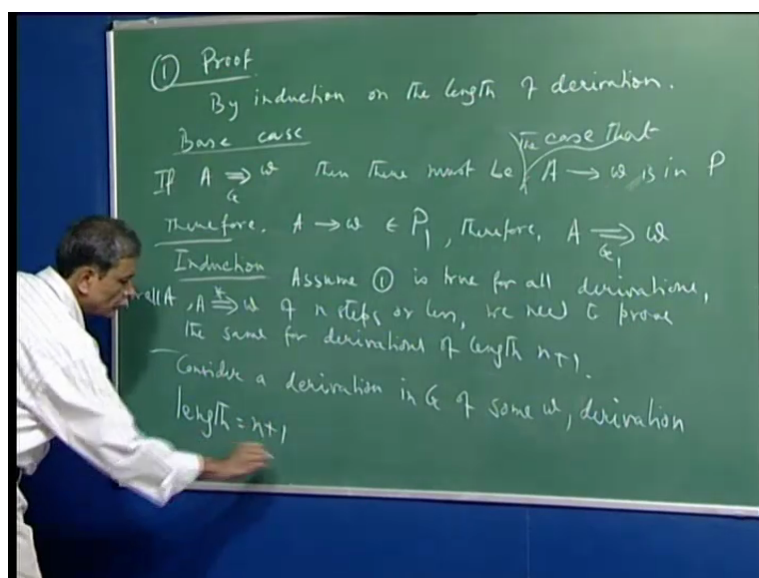 ① Proof
By induction on the length of derivation.
Base case
The case that
If A ⇒_G w then there must be A → w is in P
Therefore, A → w ∈ P₁, therefore, A ⇒_G₁ w
Induction Assume ① is true for all derivations,
all A, A ⇒* w of n steps or less, we need to prove
the same for derivations of length n+1.
Consider a derivation in G of some w, derivation
length = n+1